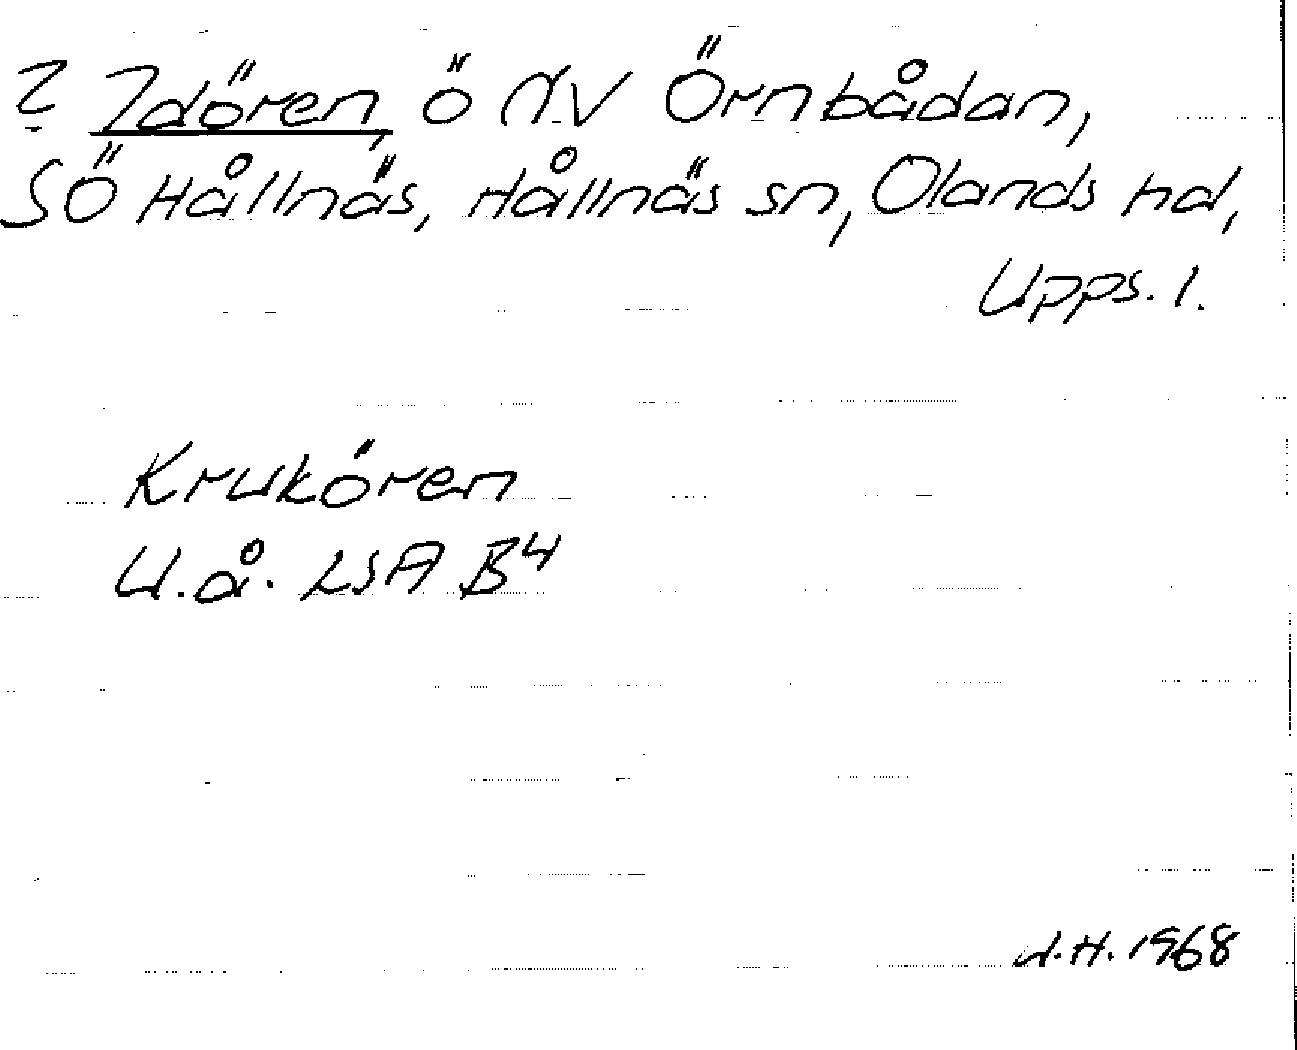 ? Idören, ö NV Örnbådan,
SÖ Hållnäs, Hållnäs sn, Olands hd,
Upps. l.
Kruören
U.å. LSA B4
U.H. 1968